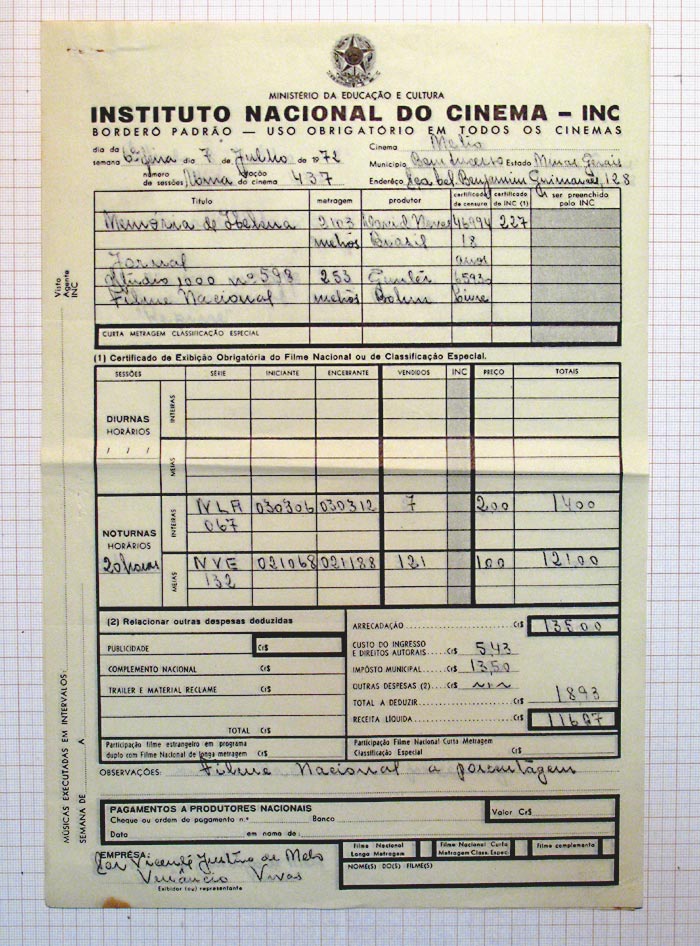 MINISTÉRIO DA EDUCAÇÃO E CULTURA
INSTITUTO NACIONAL DO CINEMA – INC
BORDERÔ PADRÃO — USO OBRIGATÓRIO EM TODOS OS CINEMAS
dia da semana 6ª feira dia 7 de Julho de 1972 Cinema
Município Bom Sucesso Estado Minas Gerais
número de sessões Uma lotação do cinema 437 Endereço Benjamim Guimarães, 128
Título metragem produtor certificado de censura certificado do INC (1) A ser preenchido pelo INC
Memória de Helena 2103 David Neves 46994 227
metros Brasil 18
Jornal anos
Studio 1000 nº 598 253
Filme Nacional metros livre
Visto Agente INC
CURTA METRAGEM CLASSIFICAÇÃO ESPECIAL
(1) Certificado de Exibição Obrigatória do Filme Nacional ou de Classificação Especial.
SESSÕES SÉRIE INICIANTE ENCERRANTE VENDIDOS INC PREÇO TOTAIS
DIURNAS
HORÁRIOS
/ / /
INTEIRAS
MEIAS
NOTURNAS
HORÁRIOS
20 horas
INTEIRAS NLA 030306 030312 7 2,00 14,00
067
MEIAS NVE 021068 021188 121 1,00 121,00
132
(2) Relacionar outras despesas deduzidas
PUBLICIDADE Cr$
COMPLEMENTO NACIONAL Cr$
TRAILER E MATERIAL RECLAME Cr$
TOTAL Cr$
ARRECADAÇÃO Cr$ 135,00
CUSTO DO INGRESSO
E DIREITOS AUTORAIS Cr$ 5,43
IMPÔSTO MUNICIPAL Cr$ 13,50
OUTRAS DESPESAS (2) Cr$
TOTAL A DEDUZIR Cr$ 18,93
RECEITA LÍQUIDA Cr$
Participação filme estrangeiro em programa
duplo com Filme Nacional de longa metragem Cr$
Participação Filme Nacional Curta Metragem
Classificação Especial Cr$
OBSERVAÇÕES: Filme Nacional a porcentagem
MÚSICAS EXECUTADAS EM INTERVALOS:
SEMANA DE A
PAGAMENTOS A PRODUTORES NACIONAIS
Cheque ou ordem de pagamento n.º Banco Valor Cr$
Data em nome de:
Filme Nacional Longa Metragem Filme Nacional Curta Metragem Class. Espec. filme complemento
NOME(S) DO(S) FILME(S)
EMPRÊSA:
Vicente Justino de Melo
Venâncio Vivas
Exibidor (ou) representante